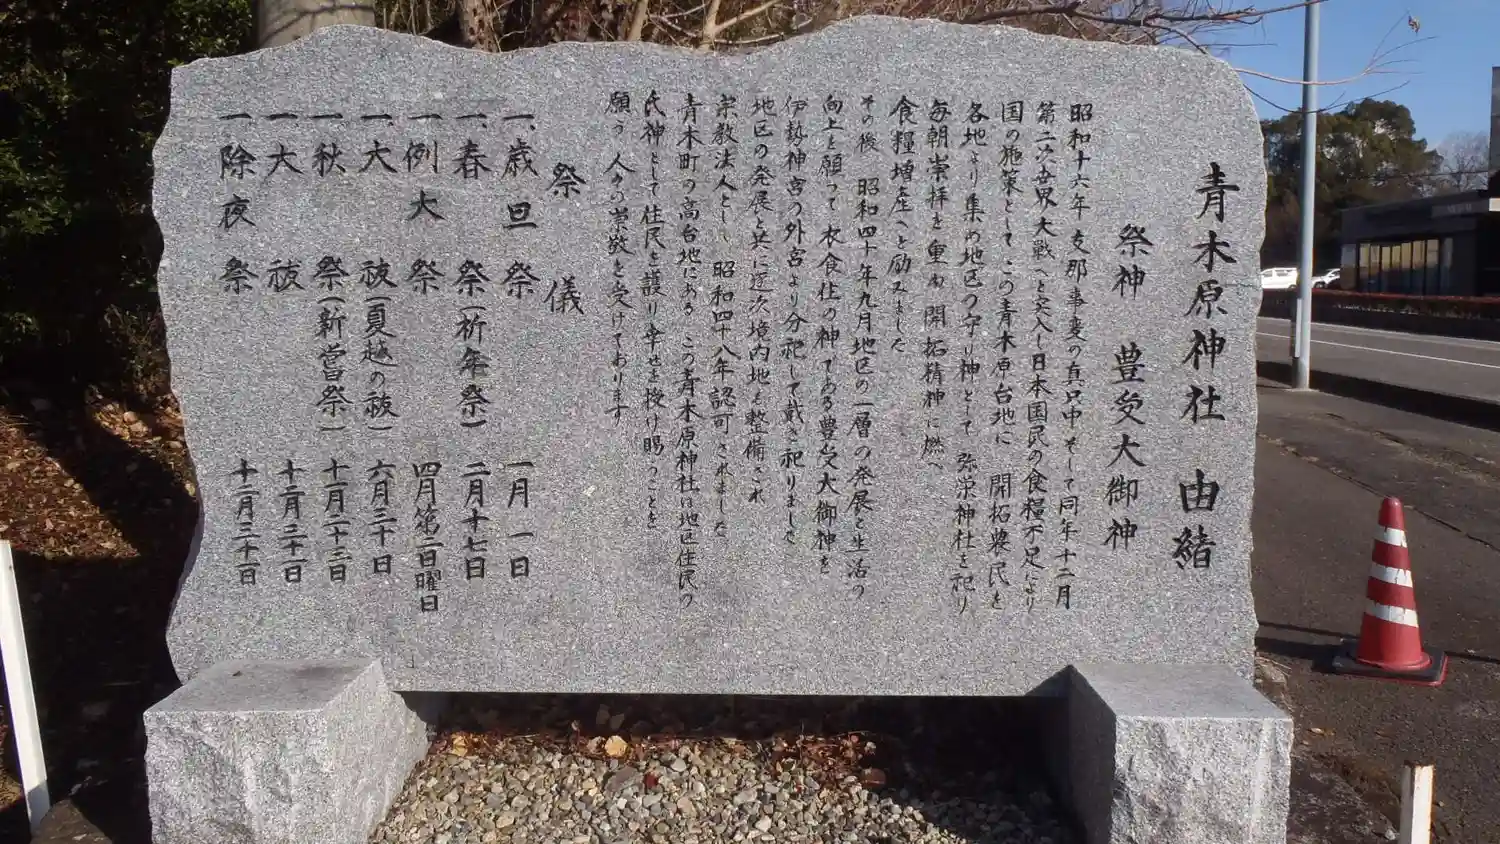 青木原神社 由緒
祭神 豊受大御神
昭和十六年 支那事変の真只中 そして同年十二月
第二次世界大戦へと突入し日本国民の食糧不足により
国の施策として この青木原台地に 開拓農民を
各地より集め地区の守り神として 弥栄神社を祀り
毎朝崇拝を重ね 開拓精神に燃へ
食糧増産へと励みました
その後 昭和四十年九月地区の一層の発展と生活の
向上を願って 衣食住の神である豊受大御神を
伊勢神宮の外宮より分祀して戴き祀りました
地区の発展と共に逐次境内地も整備され
宗教法人とし 昭和四十八年認可されました
青木町の高台地にある この青木原神社は地区住民の
氏神として 住民を護り幸せを授け賜つことを
願う 人々の崇敬を受けております
祭儀
一、歳旦祭 一月一日
一、春祭(祈年祭) 二月十七日
一、例大祭 四月第二日曜日
一、大祓(夏越の祓) 六月三十日
一、秋祭(新嘗祭) 十一月二十三日
一、大祓 十二月三十一日
一、除夜祭 十二月三十一日